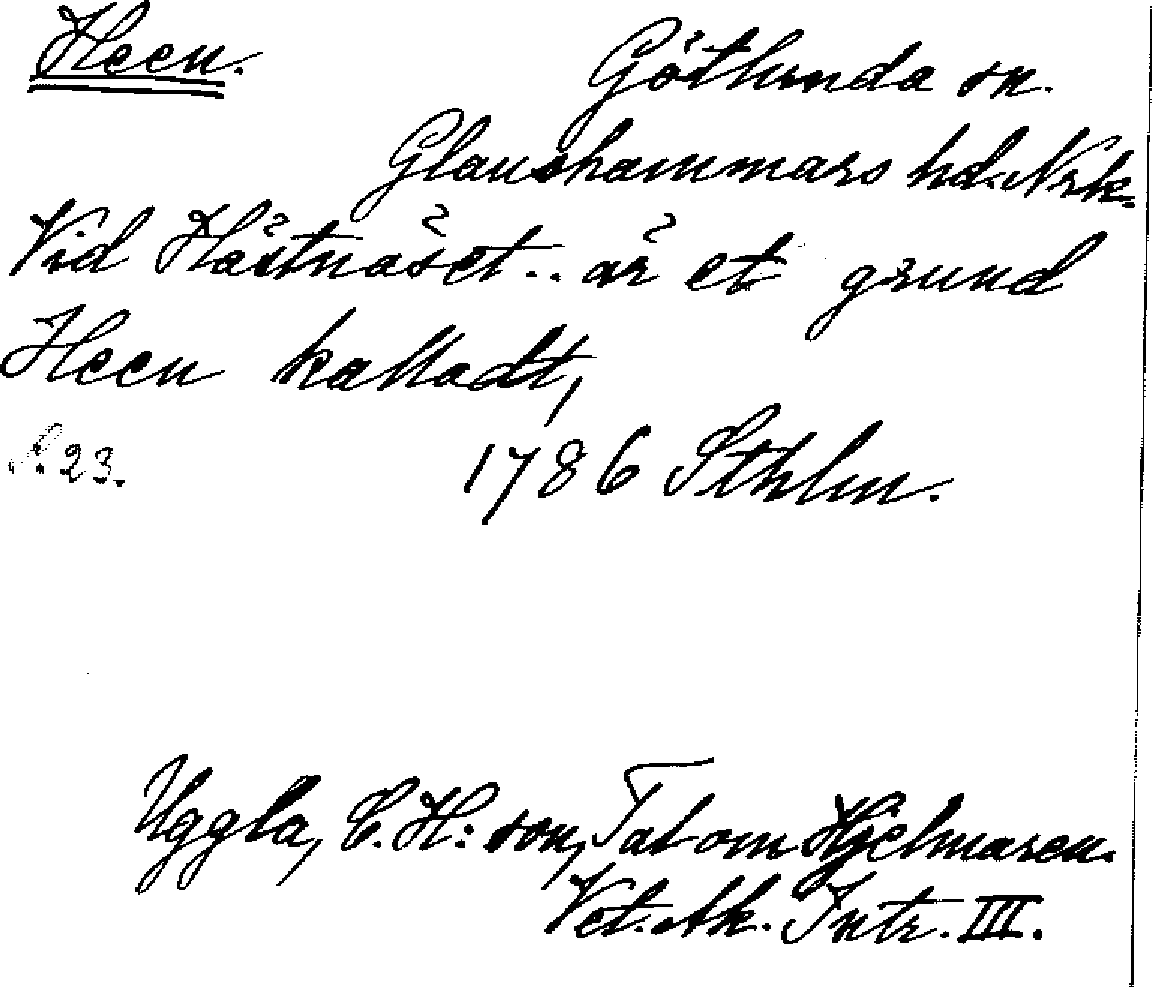 Heen.
Götlunda sn.
Glanshammars hd. Nrk.
Vid Hästnäset.. är et grund
Heen kalladt,
S. 23. 1786 Sthlm.
Uggla, C. H:son, Tal om Hjelmaren.
Vet. Ak. Intr. III.